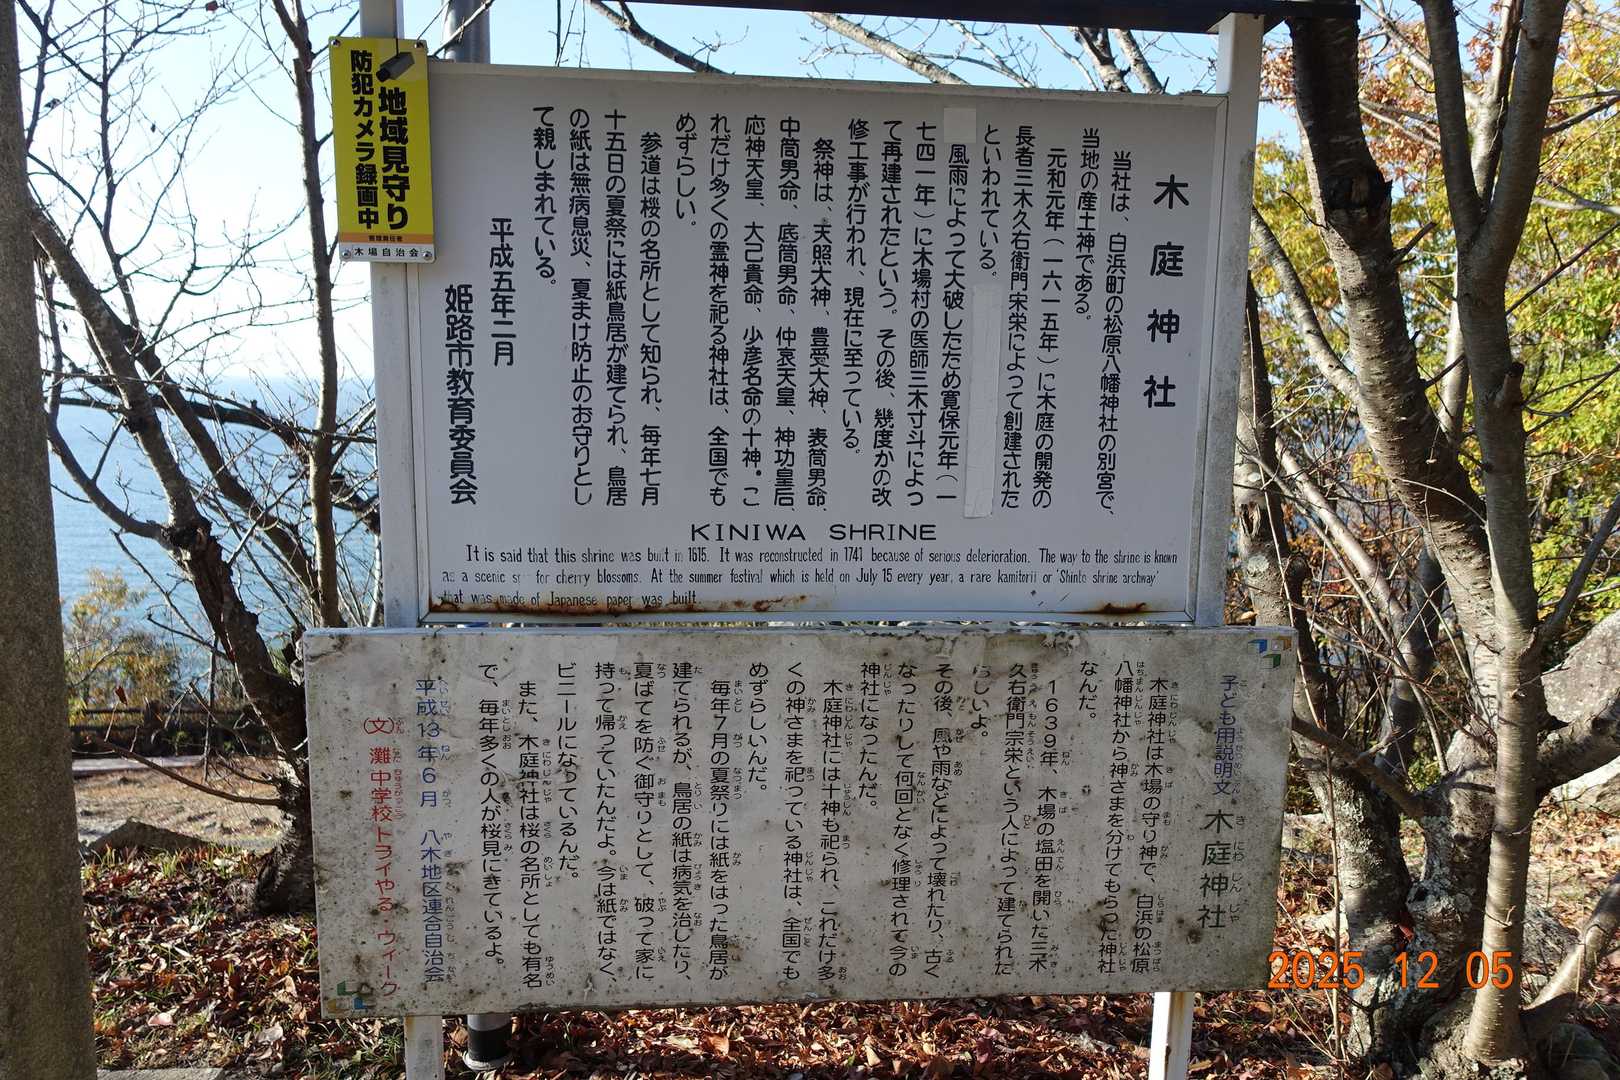 防犯カメラ録画中
地域見守り
管理責任者
木場自治会
木庭神社
当社は、白浜町の松原八幡神社の別宮で、
当地の産土神である。
元和元年(一六一五年)に木庭の開発の
長者三木久右衛門宗栄によって創建された
といわれている。
風雨によって大破したため寛保元年(一
七四一年)に木場村の医師三木寸斗によっ
て再建されたという。その後、幾度かの改
修工事が行われ、現在に至っている。
祭神は、天照大神、豊受大神、表筒男命、
中筒男命、底筒男命、仲哀天皇、神功皇后、
応神天皇、大己貴命、少彦名命の十神・こ
れだけ多くの霊神を祀る神社は、全国でも
めずらしい。
参道は桜の名所として知られ、毎年七月
十五日の夏祭には紙鳥居が建てられ、鳥居
の紙は無病息災、夏まけ防止のお守りとし
て親しまれている。
平成五年二月
姫路市教育委員会
KINIWA SHRINE
It is said that this shrine was built in 1615. It was reconstructed in 1741 because of serious deterioration. The way to the shrine is known
as a scenic for cherry blossoms. At the summer festival which is held on July 15 every year, a rare kamitorii or 'Shinto shrine archway'
that was made of Japanese paper was built.
子ども用説明文 木庭神社
木庭神社は木場の守り神で、白浜の松原
八幡神社から神さまを分けてもらった神社
なんだ。
1639年、木場の塩田を開いた三木
久右衛門宗栄という人によって建てられた
らしいよ。
その後、風や雨などによって壊れたり、古く
なったりして何回となく修理されて今の
神社になったんだ。
木庭神社には十神も祀られ、これだけ多
くの神さまを祀っている神社は、全国でも
めずらしいんだ。
毎年7月の夏祭りには紙をはった鳥居が
建てられるが、鳥居の紙は病気を治したり、
夏ばてを防ぐ御守りとして、破って家に
持って帰っていたんだよ。今は紙ではなく、
ビニールになっているんだ。
また、木庭神社は桜の名所としても有名
で、毎年多くの人が桜見にきているよ。
平成13年6月 八木地区連合自治会
(文)灘中学校トライやる・ウィーク
2025 12 05